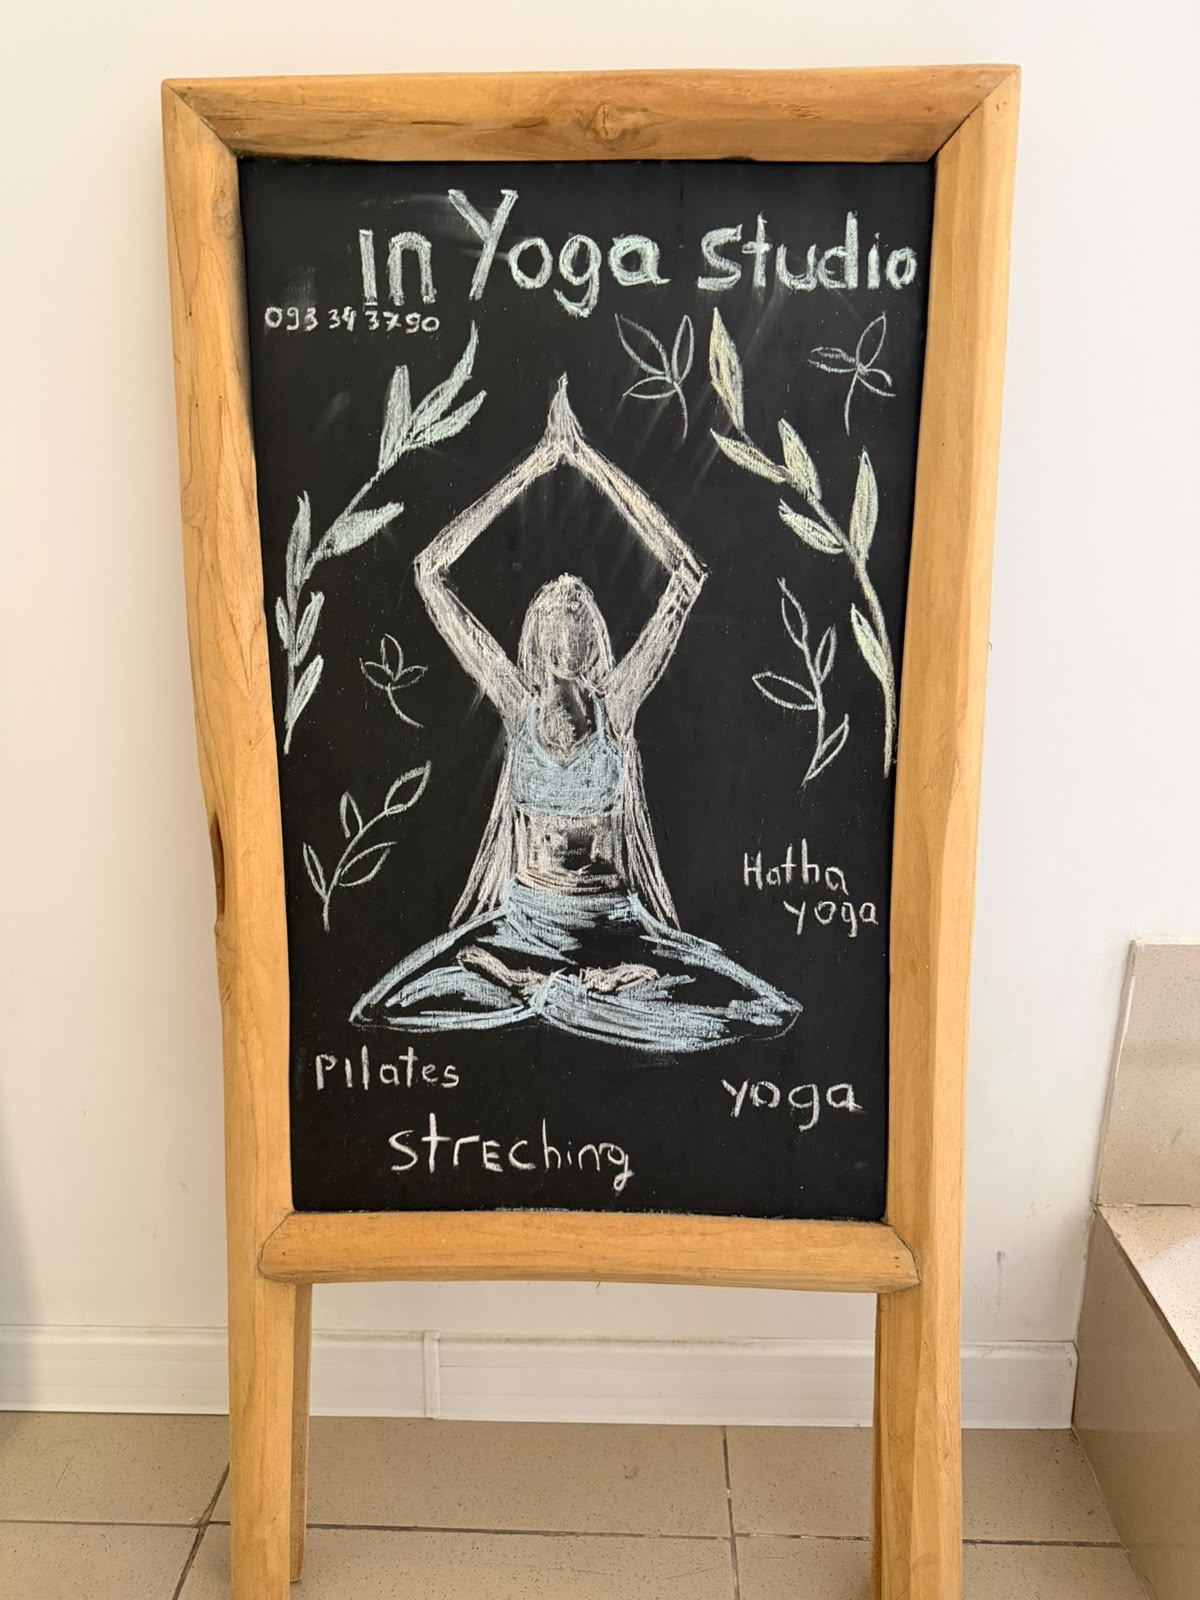 in Yoga studio
093 343790
Hatha
yoga
Pilates
yoga
streching